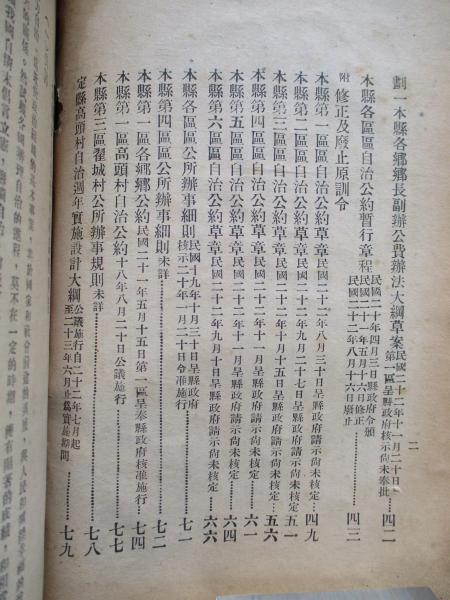 二
劃一本縣各鄉鄉長副辦公費辦法大綱草案 民國二十二年十一月二十日第一區呈縣政府核示尚未奉批……四二
本縣各區區自治公約暫行章程 民國二十年四月三日縣政府令頒 民國二十一年五月十六日修正 民國二十二年八月十六日廢止……四三
附 修正及廢止原訓令
本縣第一區區自治公約草章 民國二十二年八月三十日呈縣政府請示尚未核定……四九
本縣第二區區自治公約草章 民國二十二年九月二十七日呈縣政府請示尚未核定……五一
本縣第三區區自治公約草章 民國二十二年十月十五日呈縣政府請示尚未核定……五六
本縣第四區區自治公約草章 民國二十二年十一月呈縣政府請示尚未核定……六一
本縣第五區區自治公約草章 民國二十二年十一月呈縣政府請示尚未核定……六四
本縣第六區區自治公約草章 民國二十二年九月十日呈縣政府請示尚未核定……六六
本縣各區區公所辦事細則 民國十九年十月三十日呈縣政府核示二十年一月二十日令准施行……七一
本縣第四區區公所辦事細則 未詳……七二
本縣第一區各鄉鄉公約 民國二十一年五月十五日第一區呈奉縣政府核准施行……七四
本縣第一區高頭村自治公約 十八年八月二十日公議施行……七七
本縣第三區翟城村公所辦事規則 未詳……七八
定縣高頭村自治週年實施設計大綱 公議施行自二十二年七月起至二十三年六月止為實施期間……七九